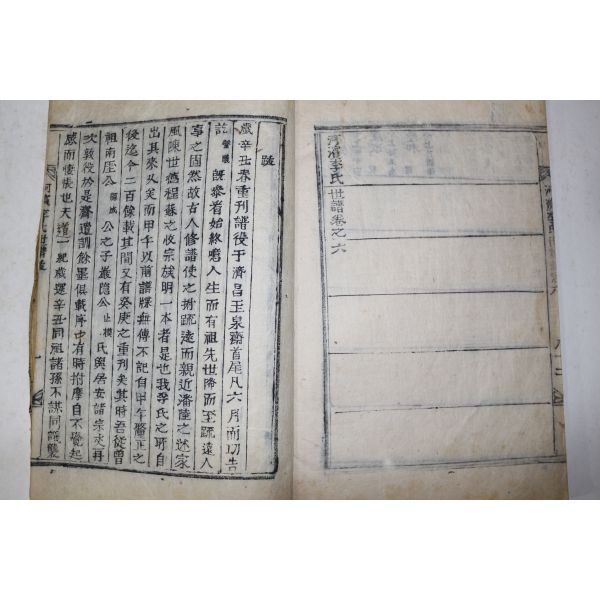 李氏世譜卷之六
跋
歲辛丑春重刊譜役于濟昌玉泉齋首尾凡六月而功告
訖旣參看始終噫人生而有祖先世降而至疏遠人
事之固然故古人修譜使之疏遠而親近潘陸之述家
風陳世德程蘇之收宗族明一本者是也我李氏之所自
出其來久矣而甲午以前譜牒無傳不記自甲午之
後迄今二百餘載其間又有癸庚之重刊矣其時吾從曾
祖南厓公公之子巖隱公止模氏與居安諸宗丈再
次敦役於是齋遺訓餘墨俱載序中有時拊摩自不覺起
感而悽悵也天道一紀載運辛丑同祖諸孫不謀同議
李氏世譜跋 一